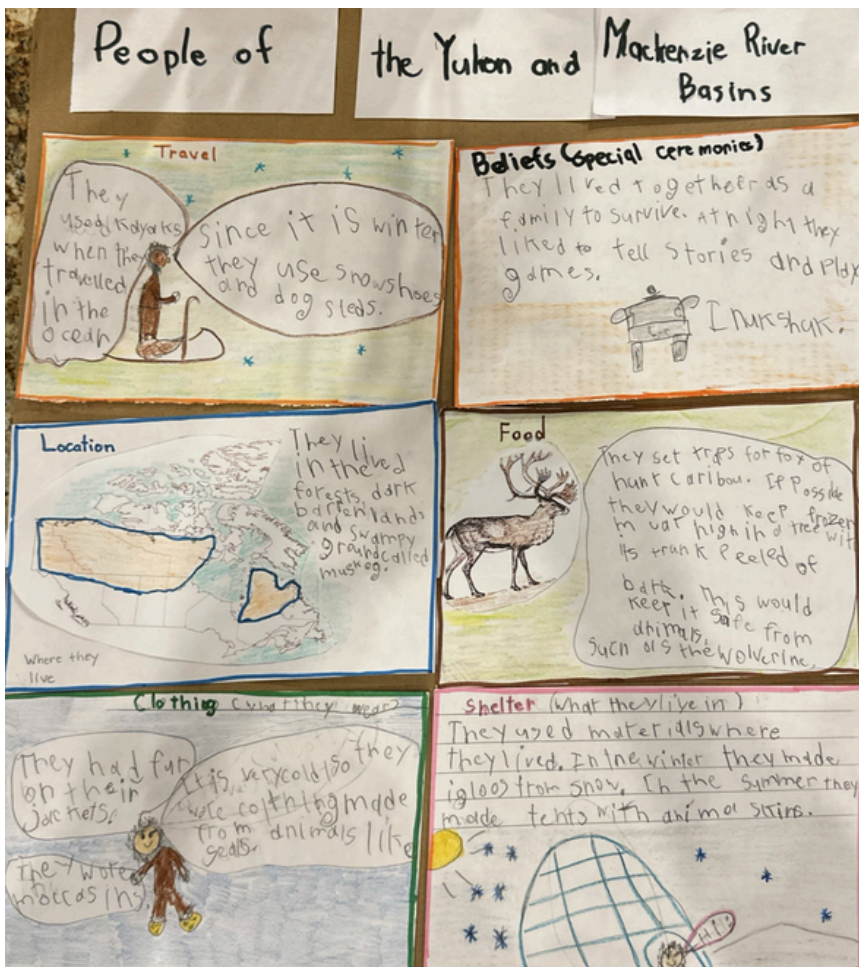 People of the Yukon and Mackenzie River
Basins
Travel
They
used Kayaks
when they
travelled
in the
ocean
Since it is winter
they use snowshoes
and dog sleds.
Beliefs (special ceremonies)
They lived together as a
family to survive. At night they
liked to tell stories and play
games.
Inukshuk.
Location
They live
in the
forests, dark
barren lands
and swampy
ground called
muskeg.
Where they
live
Food
They set traps for fox of
hunt caribou. If possible
they would keep frozen
high in a tree wit
its trunk peeled of
bark. This would
keep it safe from
animals,
such as the wolverine.
Clothing (what they wear)
They had fur
on their
jackets.
It is very cold so they
wore made
from animals like
seals.
They wore
moccasins.
Shelter (what they live in)
They used materials where
they lived. In the winter they made
igloos from snow. In the summer they
made tents with animal skins.
Hi!